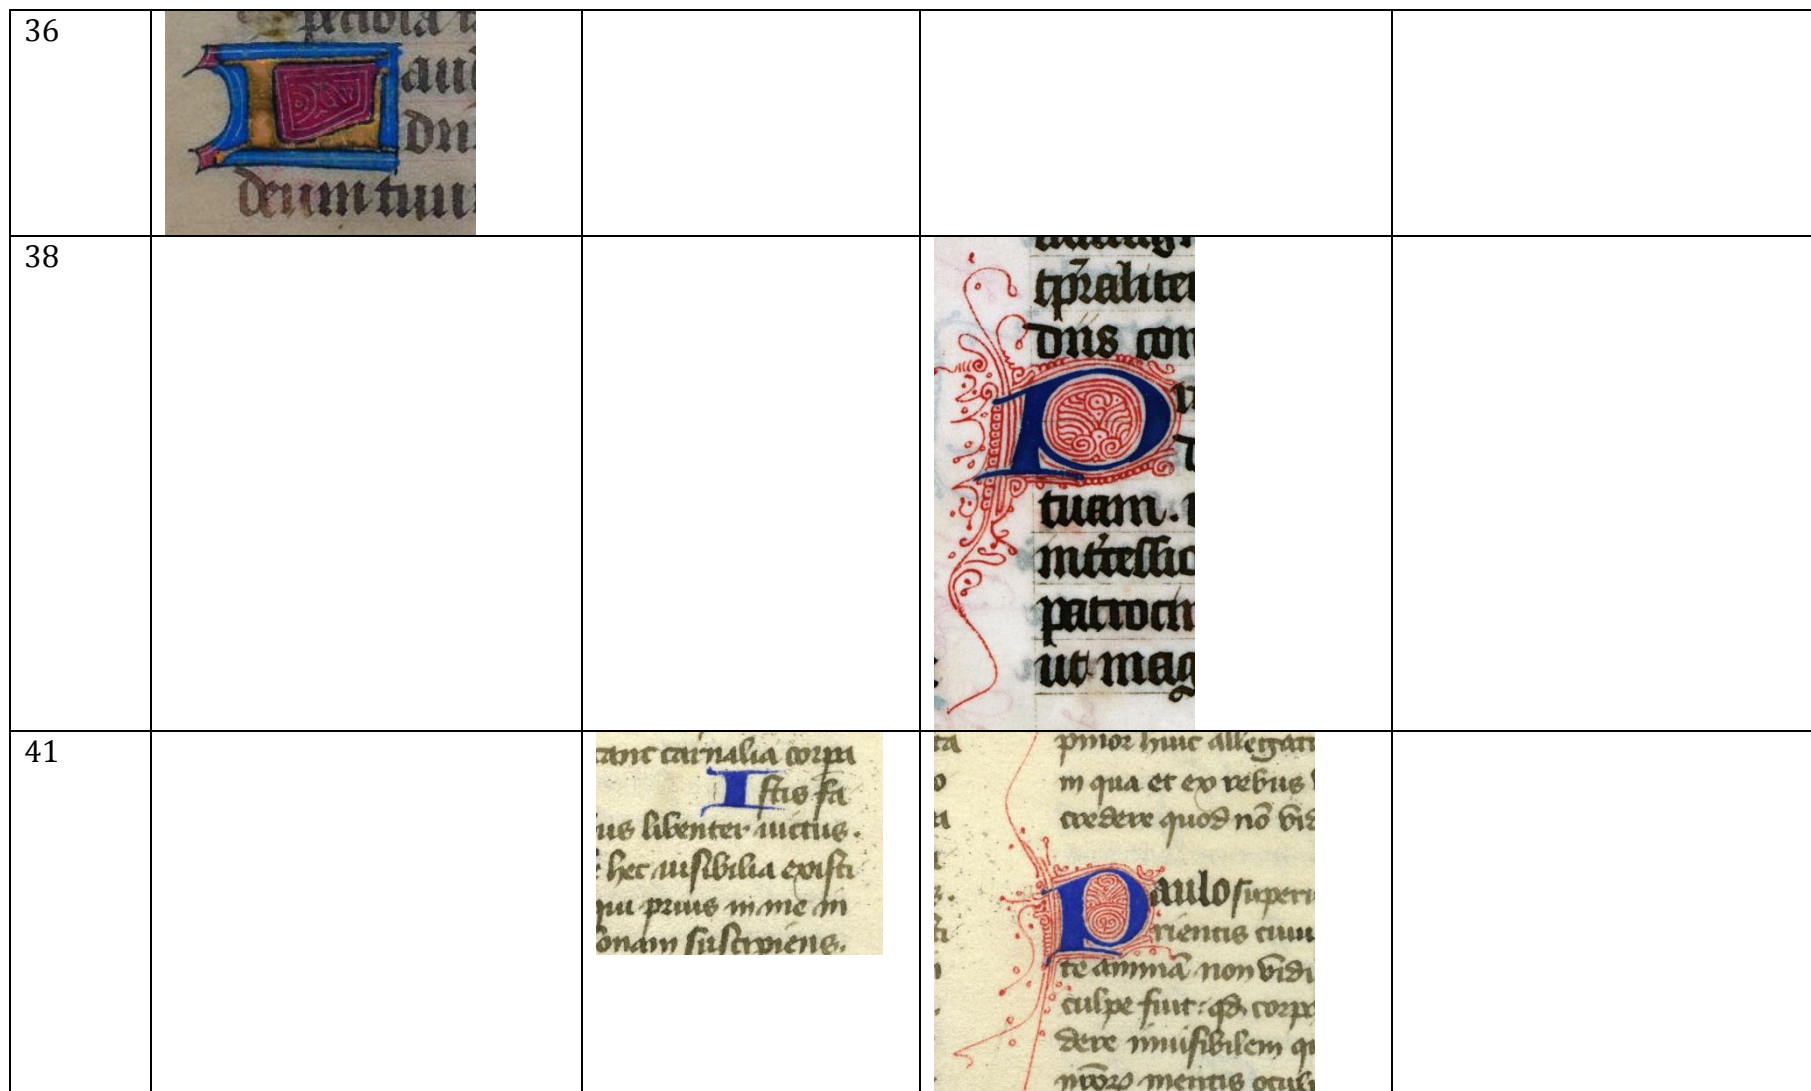 36
L au
dn
deum tuu
38
tp̄ralite
dn̄s con
P
tuam.
patrocin
ut mag
41
tant carnalia corpa
Istis fa
us libenter uictus.
hec uisibilia existi
qui prius in me in
onam suscipiens.
in qua et ex rebus
credere quod nō vid
Paulo superi
rientis cuiu
te animā non vidi
culpe fuit: qd corpo
dere inuisibilem qu
mentis ocul